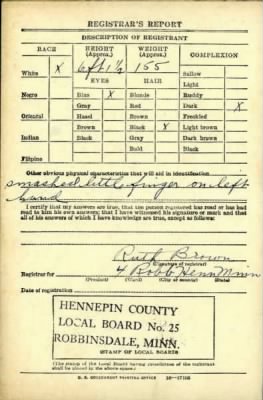 REGISTRAR'S REPORT
DESCRIPTION OF REGISTRANT
RACE HEIGHT (Approx.) WEIGHT (Approx.) COMPLEXION
White X 6 ft 1 1/2 155 Sallow
EYES HAIR Light
Negro Blue X Blonde Ruddy
Gray Red Dark X
Oriental Hazel Brown Freckled
Brown Black X Light brown
Indian Black Gray Dark brown
Bald Black
Filipino
Other obvious physical characteristics that will aid in identification
smashed little finger on left
hand
I certify that my answers are true; that the person registered has read or has had
read to him his own answers; that I have witnessed his signature or mark and that
all of his answers of which I have knowledge are true, except as follows:
Ruth Brown
(Signature of registrar)
Registrar for 4 Robb Henn Minn
(Precinct) (Ward) (City or county) (State)
Date of registration
HENNEPIN COUNTY
LOCAL BOARD No. 25
ROBBINSDALE, MINN.
STAMP OF LOCAL BOARD
(The stamp of the Local Board having jurisdiction of the registrant
shall be placed in the above space.)
U. S. GOVERNMENT PRINTING OFFICE